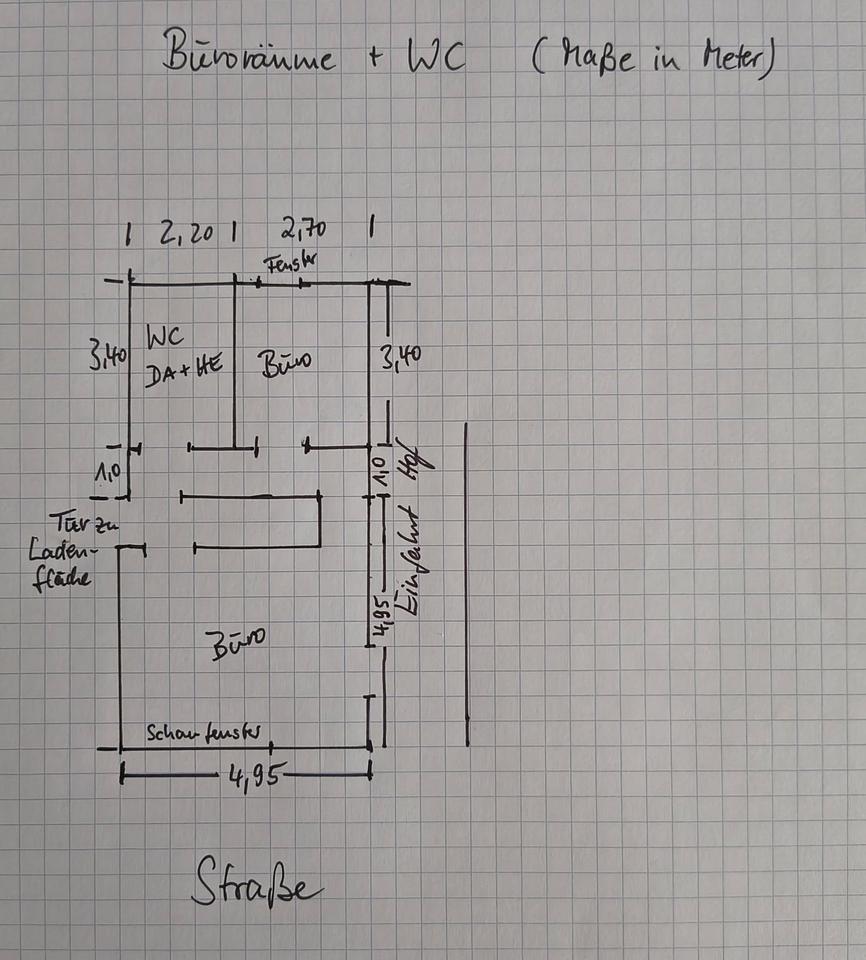 Büroräume + WC (Maße in Meter)
2,20 2,70
Fenster
3,40
WC
DA+HE
Büro
3,40
1,0
1,0
Einfahrt Hof
Tür zu
Laden-
fläche
4,95
Büro
Schaufenster
4,95
Straße